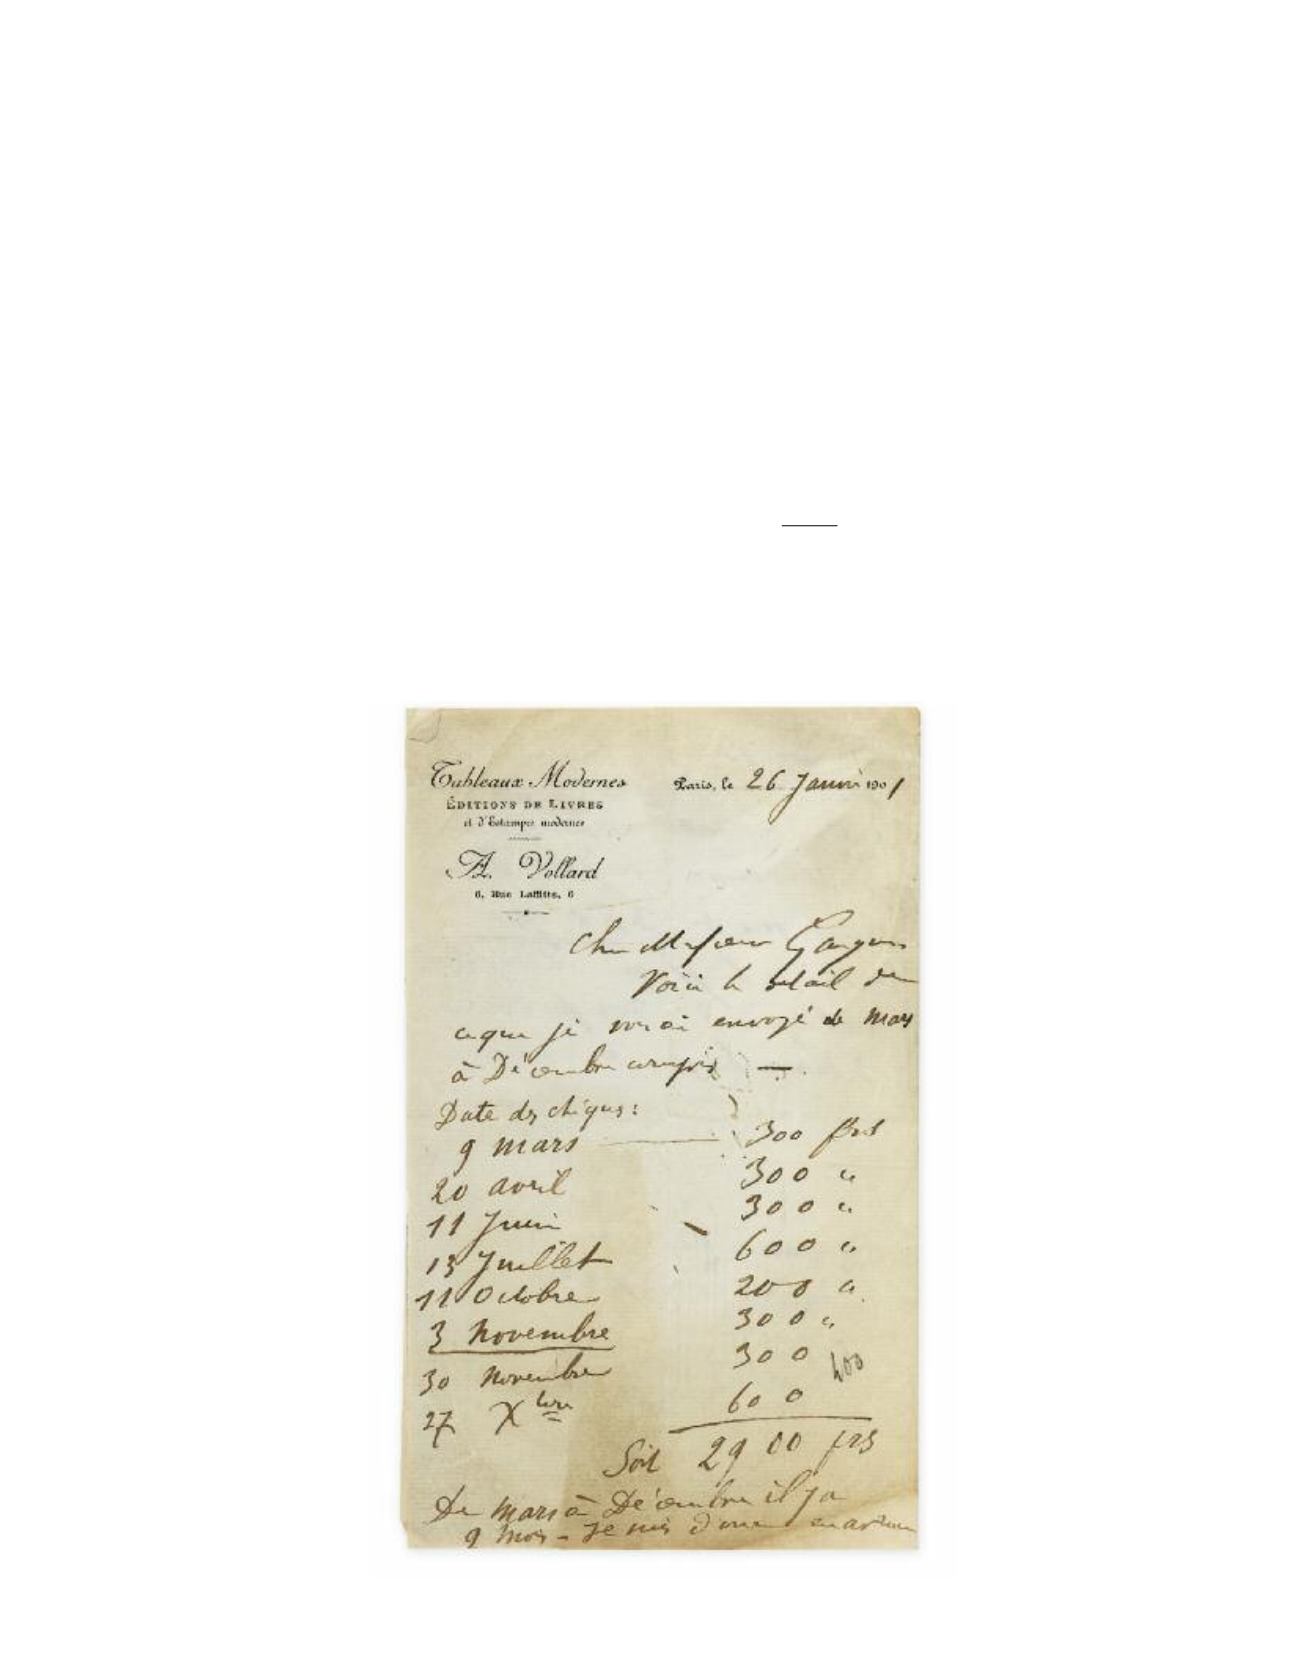 Tableaux Modernes
ÉDITIONS DE LIVRES
et d'Estampes modernes
A. Vollard
6, Rue Laffitte, 6
Paris, le 26 Janvier 1901
Cher Monsieur Gauguin
Voici le détail de
ce que je vous ai envoyé de Mars
à Décembre compris —
Date des chèques:
9 mars — 300 frs
20 avril 300 "
11 Juin 300 "
13 Juillet 600 "
11 Octobre 200 "
3 Novembre 300 "
30 Novembre 300 400
27 Xbre 600
Soit 2900 frs
De Mars à Décembre il y a
9 mois - Je suis donc en avance